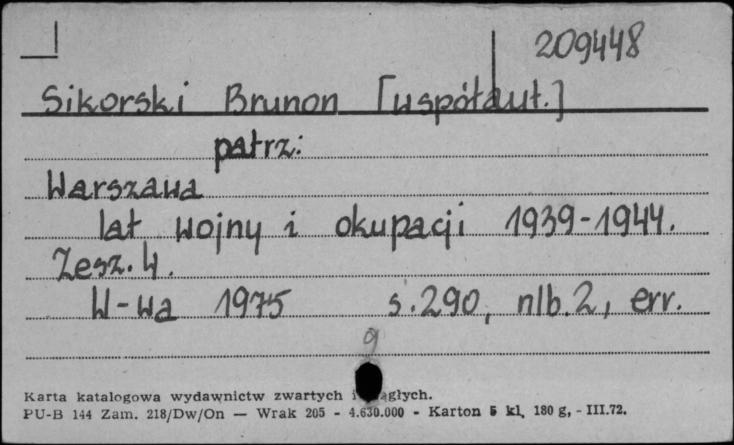 209448
Sikorski Brunon [współaut.]
patrz:
Warszawa
lat wojny i okupacji 1939-1944.
Zesz. 4.
W-wa 1975 s. 290, nlb. 2, err.
g
Karta katalogowa wydawnictw zwartych i ciągłych.
PU-B 144 Zam. 218/Dw/On — Wrak 205 - 4.630.000 - Karton 5 kl. 180 g, - III.72.